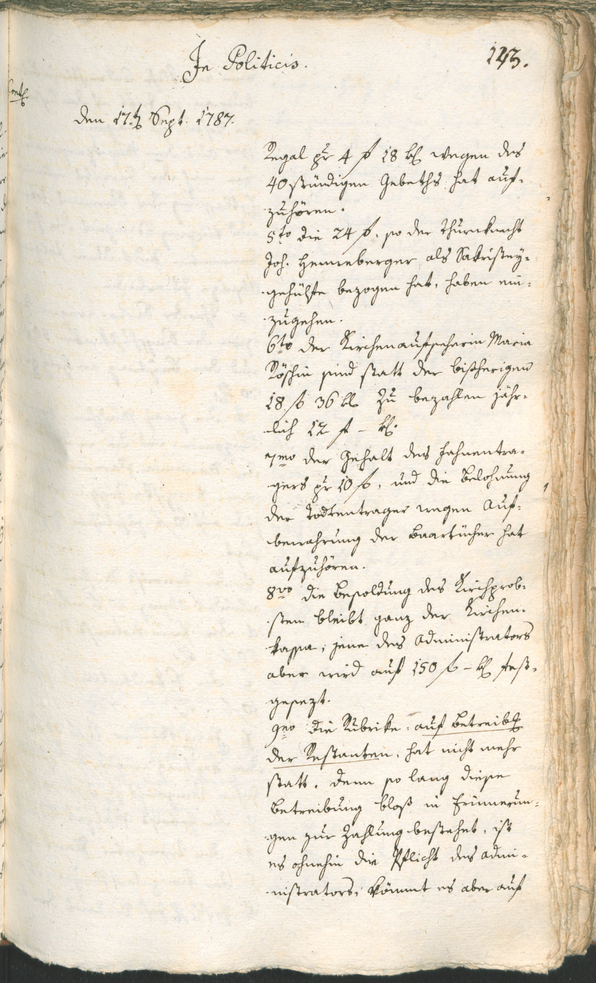 In Politicis.
143.
den 17t Sept. 1787.
Regal pr 4 f 18 kl wegen des
40stündigen Gebeths hat auf-
zuhören.
5to die 24 f, so der Thurnknecht
Joh. Henneberger als Sakristey-
gehülfe bezogen hat, haben ein-
zugehen.
6to der Kirchenaufseherin Maria
sind statt der bißherigen
18 f 36 kl zu bezahlen jähr-
lich 12 f – kl.
7mo der Gehalt des Fahnentra-
gers pr 10 f, und die Belohnung
der Todtentrager wegen Auf-
bewahrung der Baartücher hat
aufzuhören.
8vo die Besoldung des Kirchprob-
sten bleibt ganz der Kirchen-
kassa, jene des Administrators
aber wird auf 150 f – kl fest-
gesezt.
9no die Rubrike, auf Betreibg
der Restanten, hat nicht mehr
statt, denn so lang diese
Betreibung bloß in Erinnerun-
gen zur Zahlung bestehet, ist
es ohnehin die Pflicht des Admi-
nistrators; kömmt es aber auf